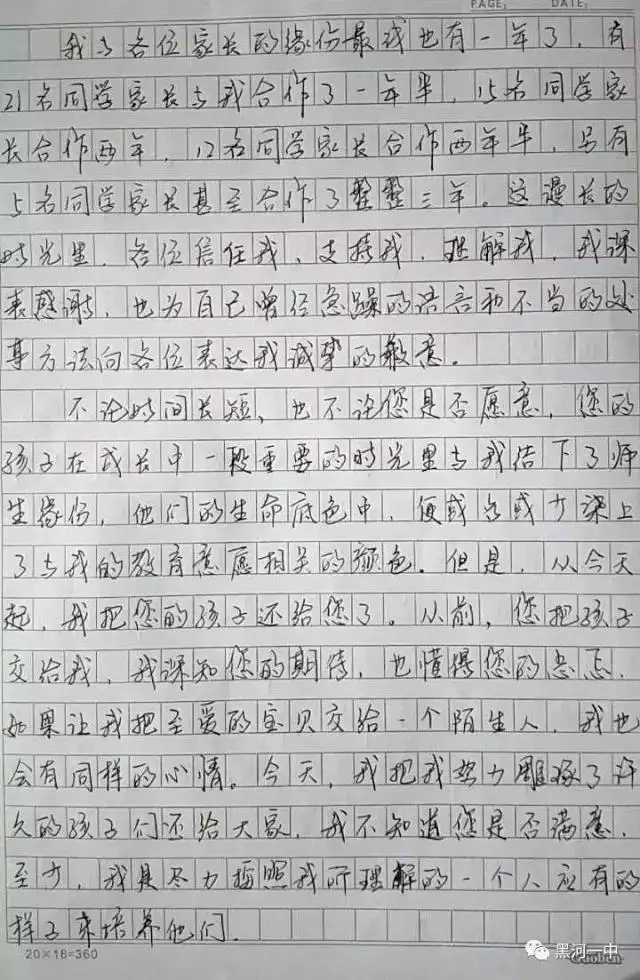 PAGE: DATE:
我与各位家长的缘份最浅也有一年了，有
21名同学家长与我合作了一年半，15名同学家
长合作两年，12名同学家长合作两年半，另有
5名同学家长甚至合作了整整三年。这漫长的
时光里，各位信任我、支持我、理解我，我深
表感谢，也为自己曾经急躁的语言和不当的处
事方法向各位表达我诚挚的歉意。
不论时间长短，也不论您是否愿意，您的
孩子在成长中一段重要的时光里与我结下了师
生缘份，他们的生命底色中，便或多或少染上
了与我的教育意愿相关的颜色。但是，从今天
起，我把您的孩子还给您了。从前，您把孩子
交给我，我深知您的期待，也懂得您的忐忑，
如果让我把至爱的宝贝交给一个陌生人，我也
会有同样的心情。今天，我把我努力雕琢了许
久的孩子们还给大家，我不知道您是否满意，
至少，我是尽力按照我所理解的一个人应有的
样子来培养他们。
20×18=360
黑河一中
Guoben